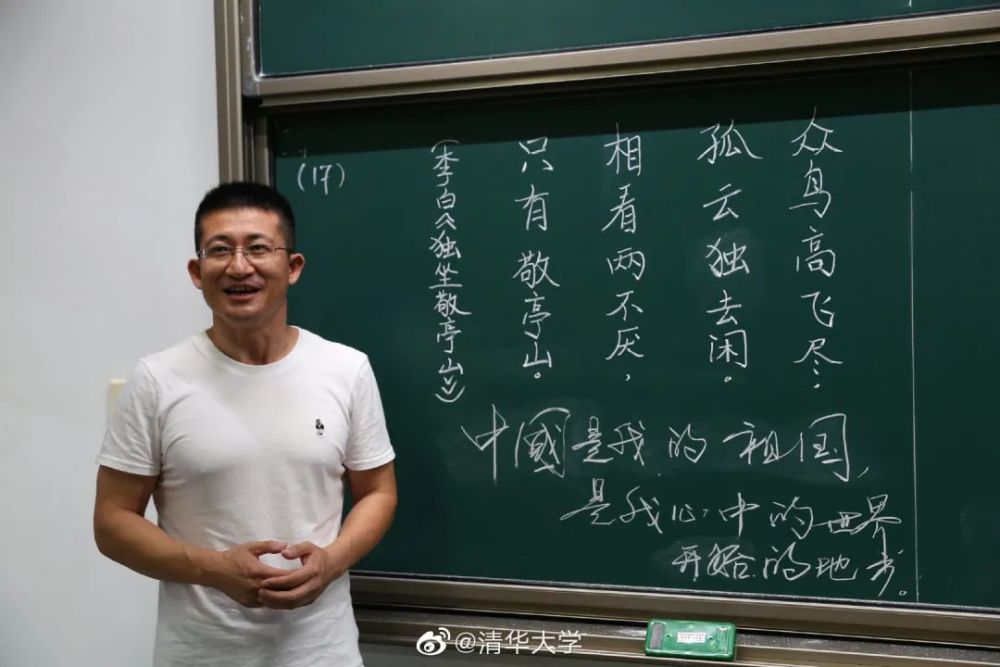 众鸟高飞尽，
孤云独去闲。
相看两不厌，
只有敬亭山。
(李白《独坐敬亭山》)
(17)
中國是我的祖国，
是我心中的世界
开始的地方。
@清华大学